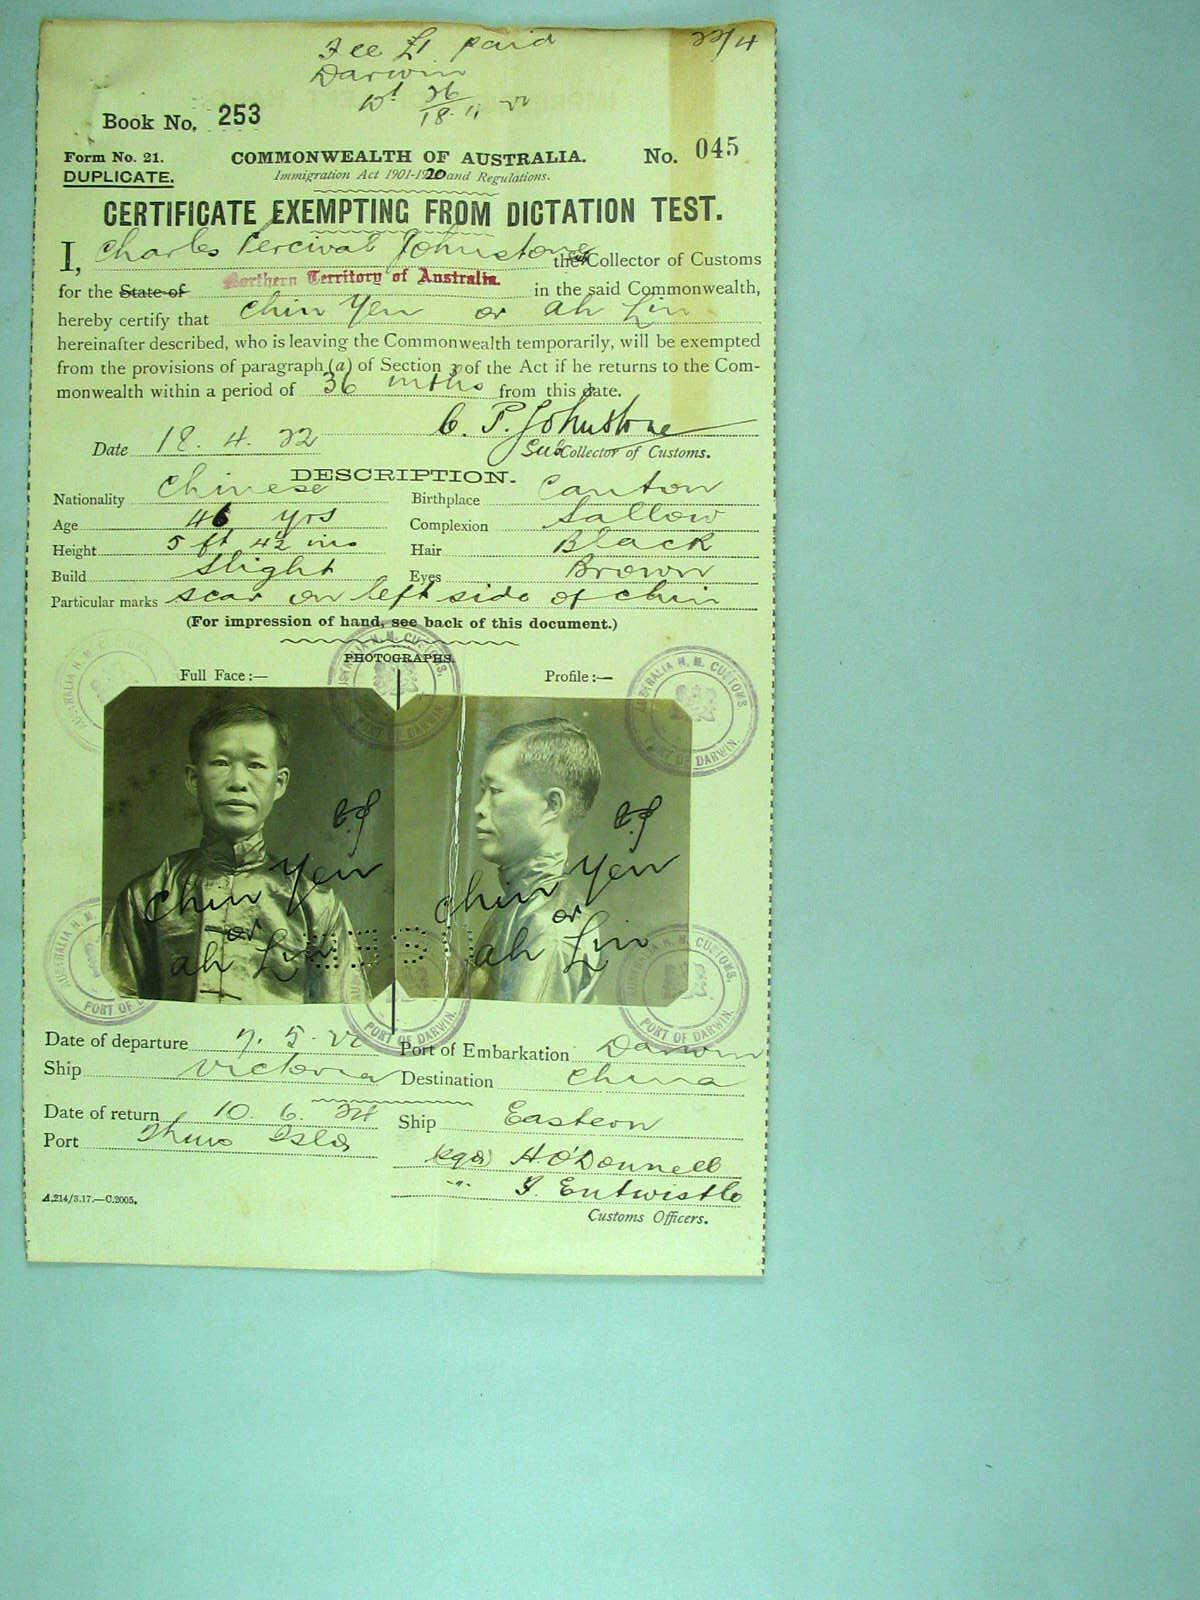 Fee £1 paid
Darwin
26
18.
22/4
Book No. 253
Form No. 21.
COMMONWEALTH OF AUSTRALIA.
No. 045
DUPLICATE.
Immigration Act 1901-1920 and Regulations.
CERTIFICATE EXEMPTING FROM DICTATION TEST.
I, Charles Percival Johnstone the Sub Collector of Customs
for the State of Northern Territory of Australia. in the said Commonwealth,
hereby certify that Chin Yen or Ah Lin
hereinafter described, who is leaving the Commonwealth temporarily, will be exempted
from the provisions of paragraph (a) of Section 3 of the Act if he returns to the Com-
monwealth within a period of 36 mths from this date.
C. P. Johnstone
Date 18. 4. 22
Sub Collector of Customs.
DESCRIPTION.
Nationality Chinese Birthplace Canton
Age 46 yrs Complexion Sallow
Height 5 ft 4½ ins Hair Black
Build Slight Eyes Brown
Particular marks scar on left side of chin
(For impression of hand, see back of this document.)
PHOTOGRAPHS.
Full Face:— Profile:—
AUSTRALIA H. M. CUSTOMS. PORT OF DARWIN.
Chin Yen
or
Ah Lin
Chin Yen
or
Ah Lin
Date of departure 7. 5. 22 Port of Embarkation Darwin
Ship Victoria Destination China
Date of return 10. 6. 24 Ship Eastern
Port Thurs Isld
(Sgd) H O'Donnell
-"- J. Entwistle
A.214/3.17.—C.2005.
Customs Officers.